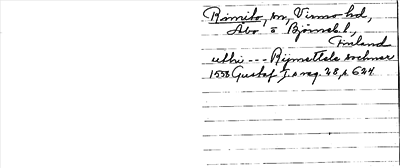 Rimito, sn, Virmo hd,
Åbo o Björneb. l.,
Finland
uthi --- Rijmettela sochnar
1558 Gustaf I:s reg. 28, s. 624